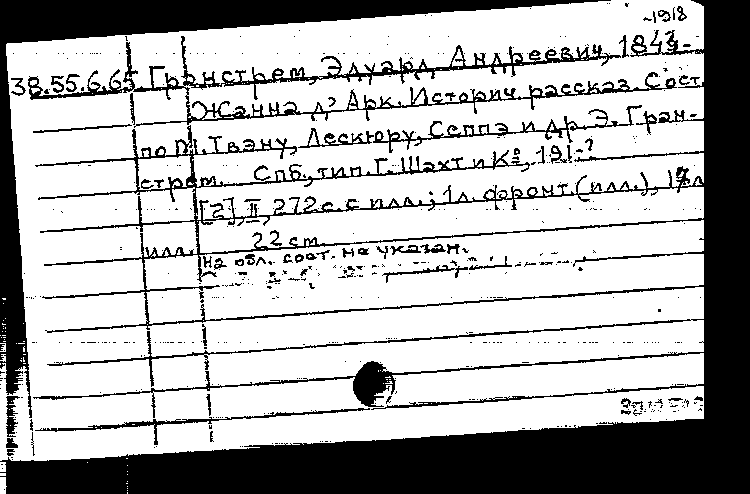 ~1918
38.55.6.65. Гранстрем, Эдуард Андреевич, 1843-
Жанна д'Арк. Историч. рассказ. Сост.
по М. Твэну, Лескюру, Сеппэ и др. Э. Гран-
стрем. Спб., тип. Г. Шахт и К°, 191-?
[2], II, 272 с. с илл.; 1 л. фронт. (илл.), л
илл. 22 см.
На обл. сост. не указан.